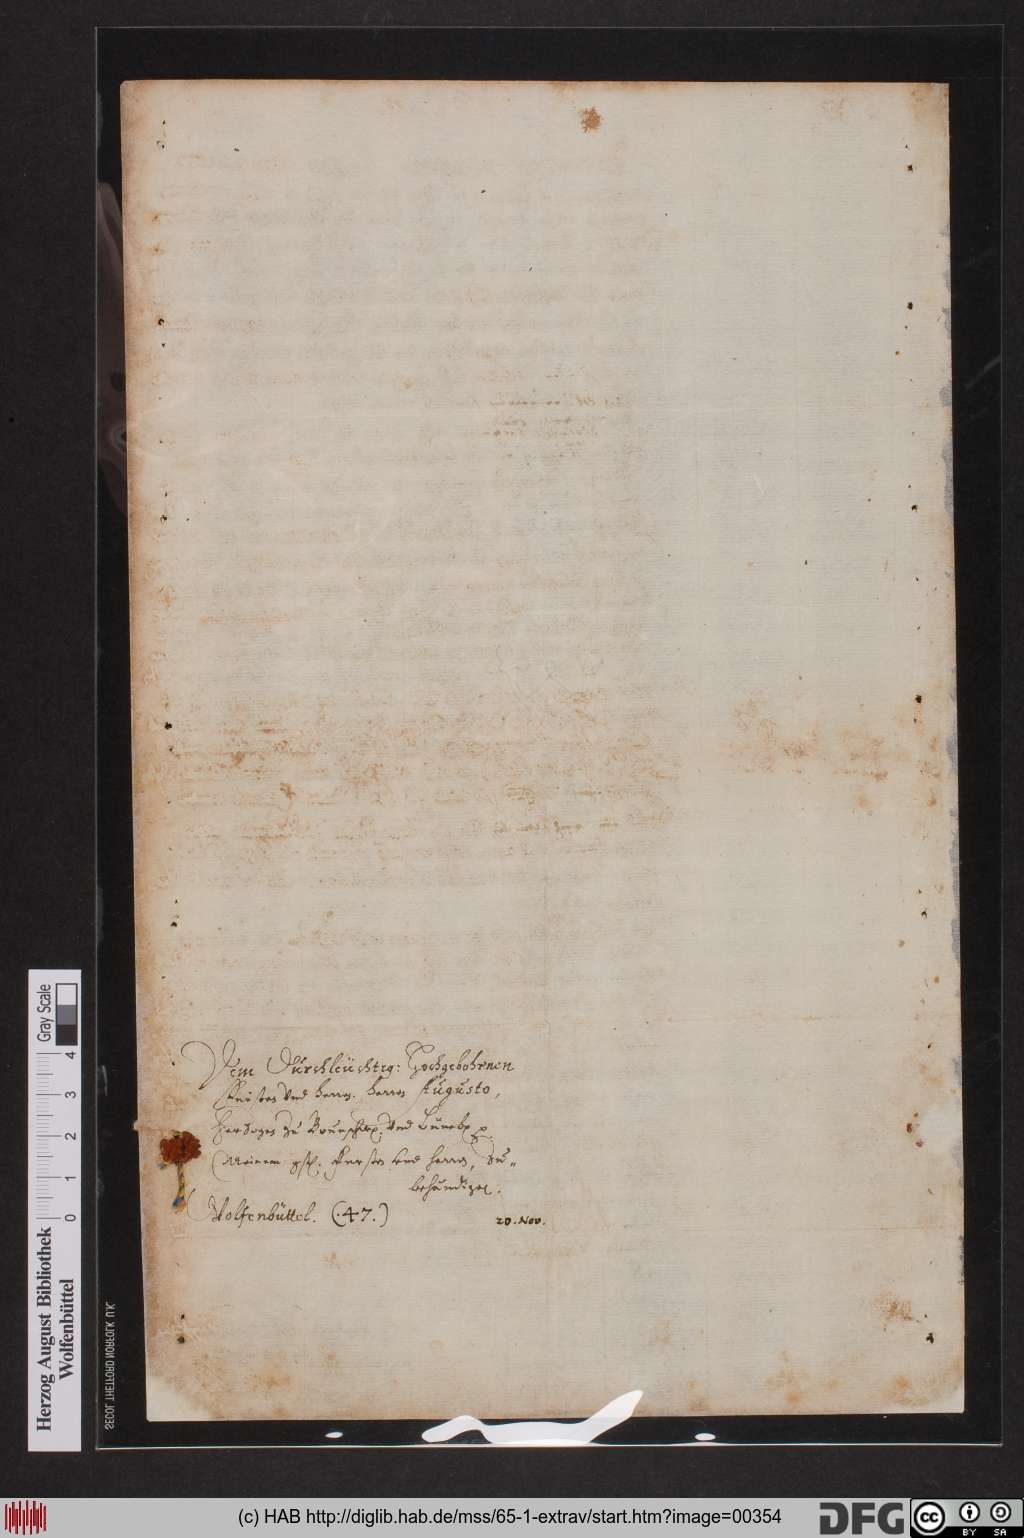 Dem Durchleüchtig: Hochgebohrnen
Fürsten Und Herrn. Herrn Augusto,
Herzogen zu Braunschw. Und Lüneb.
Meinem gn. Fürsten und Herrn, zu„
behändigen.
Wolfenbüttel. (47.)
20. Nov.
Gray Scale
0 1 2 3 4
Herzog August Bibliothek
Wolfenbüttel
SECOL THETFORD NORFOLK U.K.
(c) HAB http://diglib.hab.de/mss/65-1-extrav/start.htm?image=00354
DFG
cc BY SA